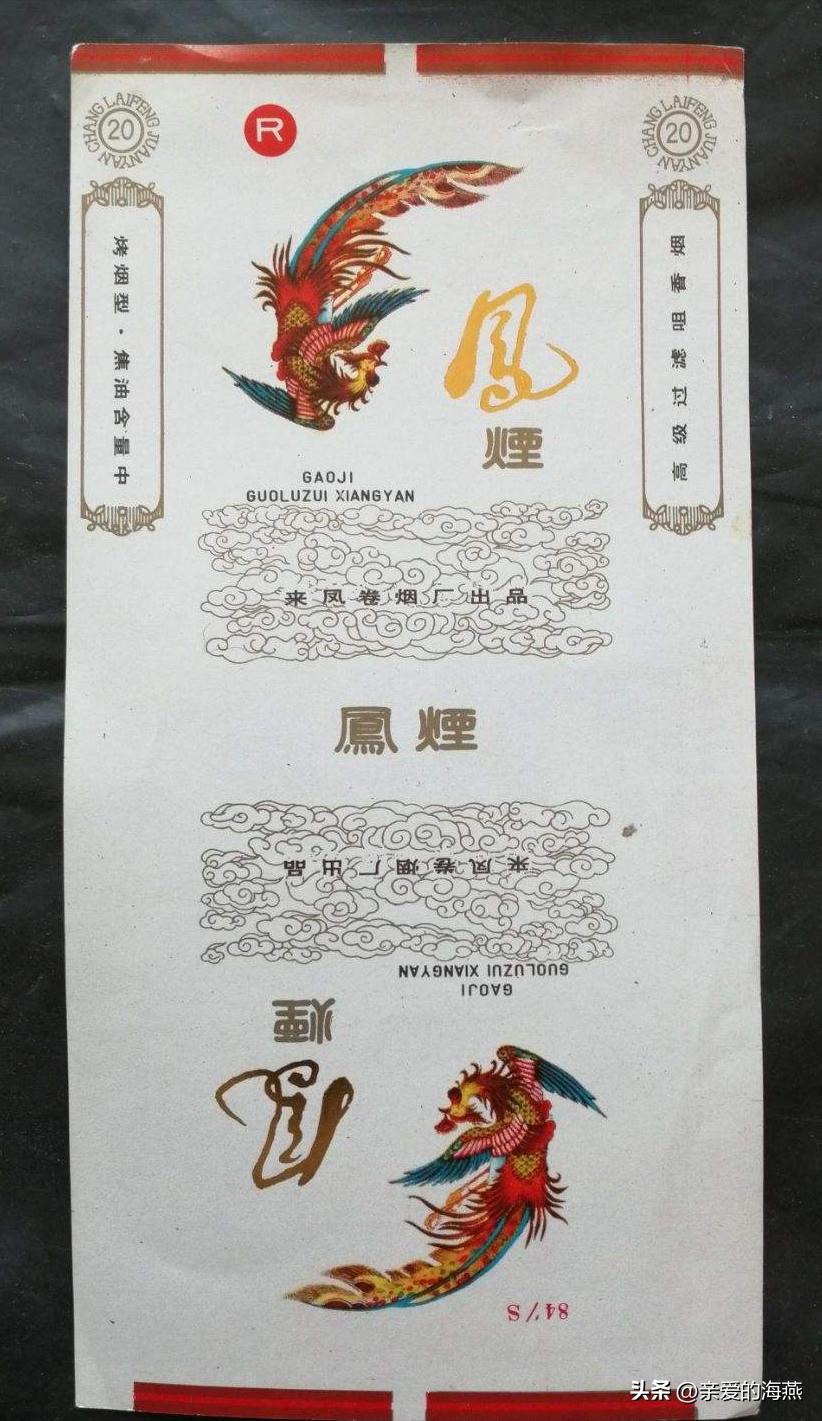 LAIFENG JUANYAN CHANG
20
LAIFENG JUANYAN CHANG
20
R
烤烟型·焦油含量中
高级过滤咀香烟
鳳
煙
GAOJI
GUOLUZUI XIANGYAN
来凤卷烟厂出品
鳳煙
来凤卷烟厂出品
GUOLUZUI XIANGYAN
GAOJI
煙
鳳
84/S
头条 @亲爱的海燕